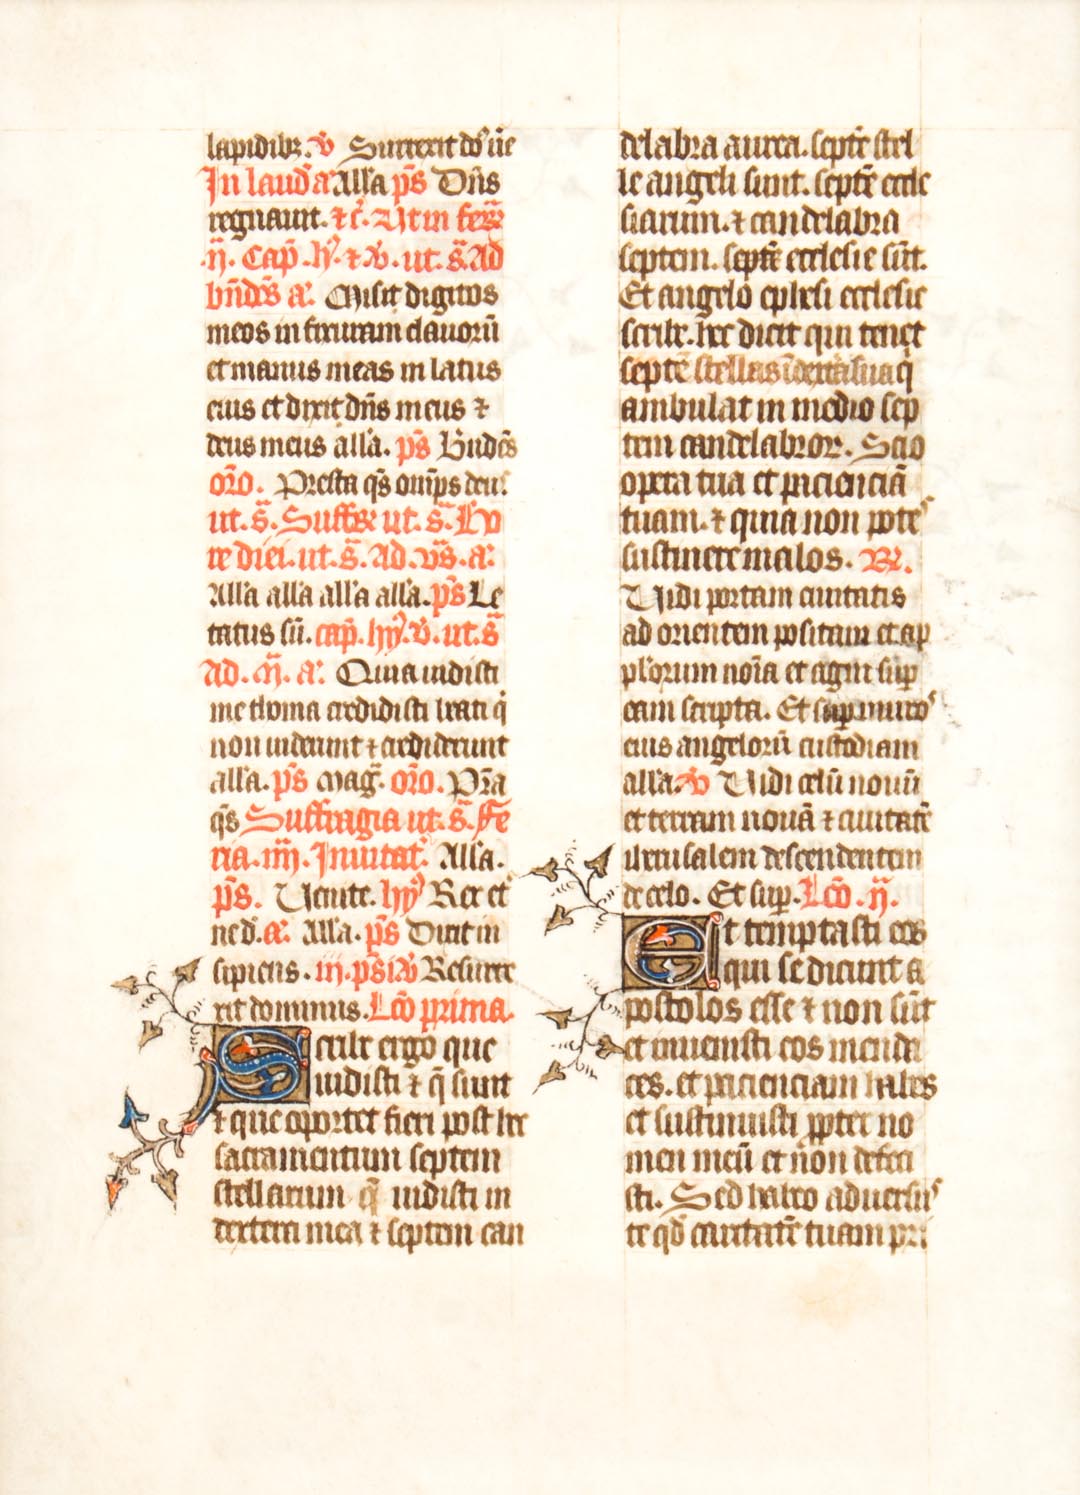 lapidibꝫ. ℣ Surrexit dñs ve
In laud̄ a All'a p̄s Dn̄s
regnauit. ⁊ c̄.
.ij. Cap̄. hỹ. ⁊ ℣. ut. s̄. Ad
bn̄dc̄s a᷒. Misit digitos
meos in fixuram clauorū
et manus meas in latus
eius et dixit dn̄s meus ⁊
deus meus all'a. p̄s Bn̄dc̄s
oro᷒. Presta q̄s om̄ps deus
ut. s̄. Suffr̄ ut. s̄. Ho
re diei. ut. s̄. ad. v̄s. a᷒
All'a all'a all'a all'a. p̄s Le
tatus sū. cap̄. hỹ. ℣. ut. s̄
Ad. m̄. a᷒ Quia uidisti
me thoma credidisti beati q̇
non uiderunt ⁊ crediderunt
all'a. p̄s mag̅. or̄o. P̄ra
q̄s Suffragia ut. s̄. Fe
ria. iiij. Inuitat᷒. All'a.
p̄s. Venite. hỹ Rex et᷒
ne d᷒. a᷒. All'a. p̄s Dixit in
sipiens. iij. p̄s ℣ Resurre
xit dominus. Lc̄o prima.
Scribe ergo que
uidisti ⁊ q̄ sunt
⁊ que oportet fieri post hec
sacramentum septem
stellarum q̄ uidisti in
dextera mea ⁊ septem can
delabra aurea. septē stel
le angeli sunt. septē eccle
siarum. ⁊ candelabra
septem. septē ecclesie sūt.
Et angelo ephesi ecclesie
scribe. hec dicit qui tenet
septē stellas ī dextera sua q̇
ambulat in medio sep
tem candelabror᷒. Scio
opera tua et pacienciā
tuam. ⁊ quia non potes
sustinere malos. ℟.
Vidi portam ciuitatis
ad orientem positam et ap
pl'orum noīa et agni sup̄
eam scripta. Et sup̄ muros
eius angelorū custodiam
all'a. ℣ Vidi celū nouū
et terram nouā ⁊ ciuitatē
iherusalem descendentem
de celo. Et sup̄. Lc̄o. ij.
Et temptasti eos
qui se dicunt a
postolos esse ⁊ non sūt
et inuenisti eos menda
ces. et pacienciam habes
et sustinuisti ꝓpter no
men meū et non defeci
sti. Sed habeo aduersus
te qd̄ caritatē tuam pri